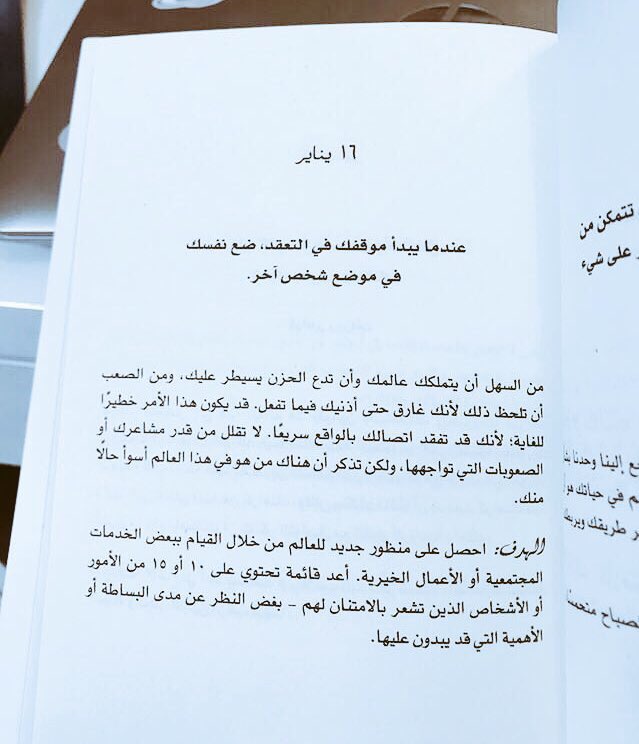 ١٦ يناير
عندما يبدأ موقفك في التعقد، ضع نفسك
في موضع شخص آخر.
من السهل أن يتملكك عالمك وأن تدع الحزن يسيطر عليك، ومن الصعب
أن تلحظ ذلك لأنك غارق حتى أذنيك فيما تفعل. قد يكون هذا الأمر خطيرًا
للغاية؛ لأنك قد تفقد اتصالك بالواقع سريعًا. لا تقلل من قدر مشاعرك أو
الصعوبات التي تواجهها، ولكن تذكر أن هناك من هو في هذا العالم أسوأ حالًا
منك.
الهدف: احصل على منظور جديد للعالم من خلال القيام ببعض الخدمات
المجتمعية أو الأعمال الخيرية. أعد قائمة تحتوي على ١٠ أو ١٥ من الأمور
أو الأشخاص الذين تشعر بالامتنان لهم – بغض النظر عن مدى البساطة أو
الأهمية التي قد يبدون عليها.
تتمكن من
على شيء
إلينا وحدنا
في حياتك
طريقك